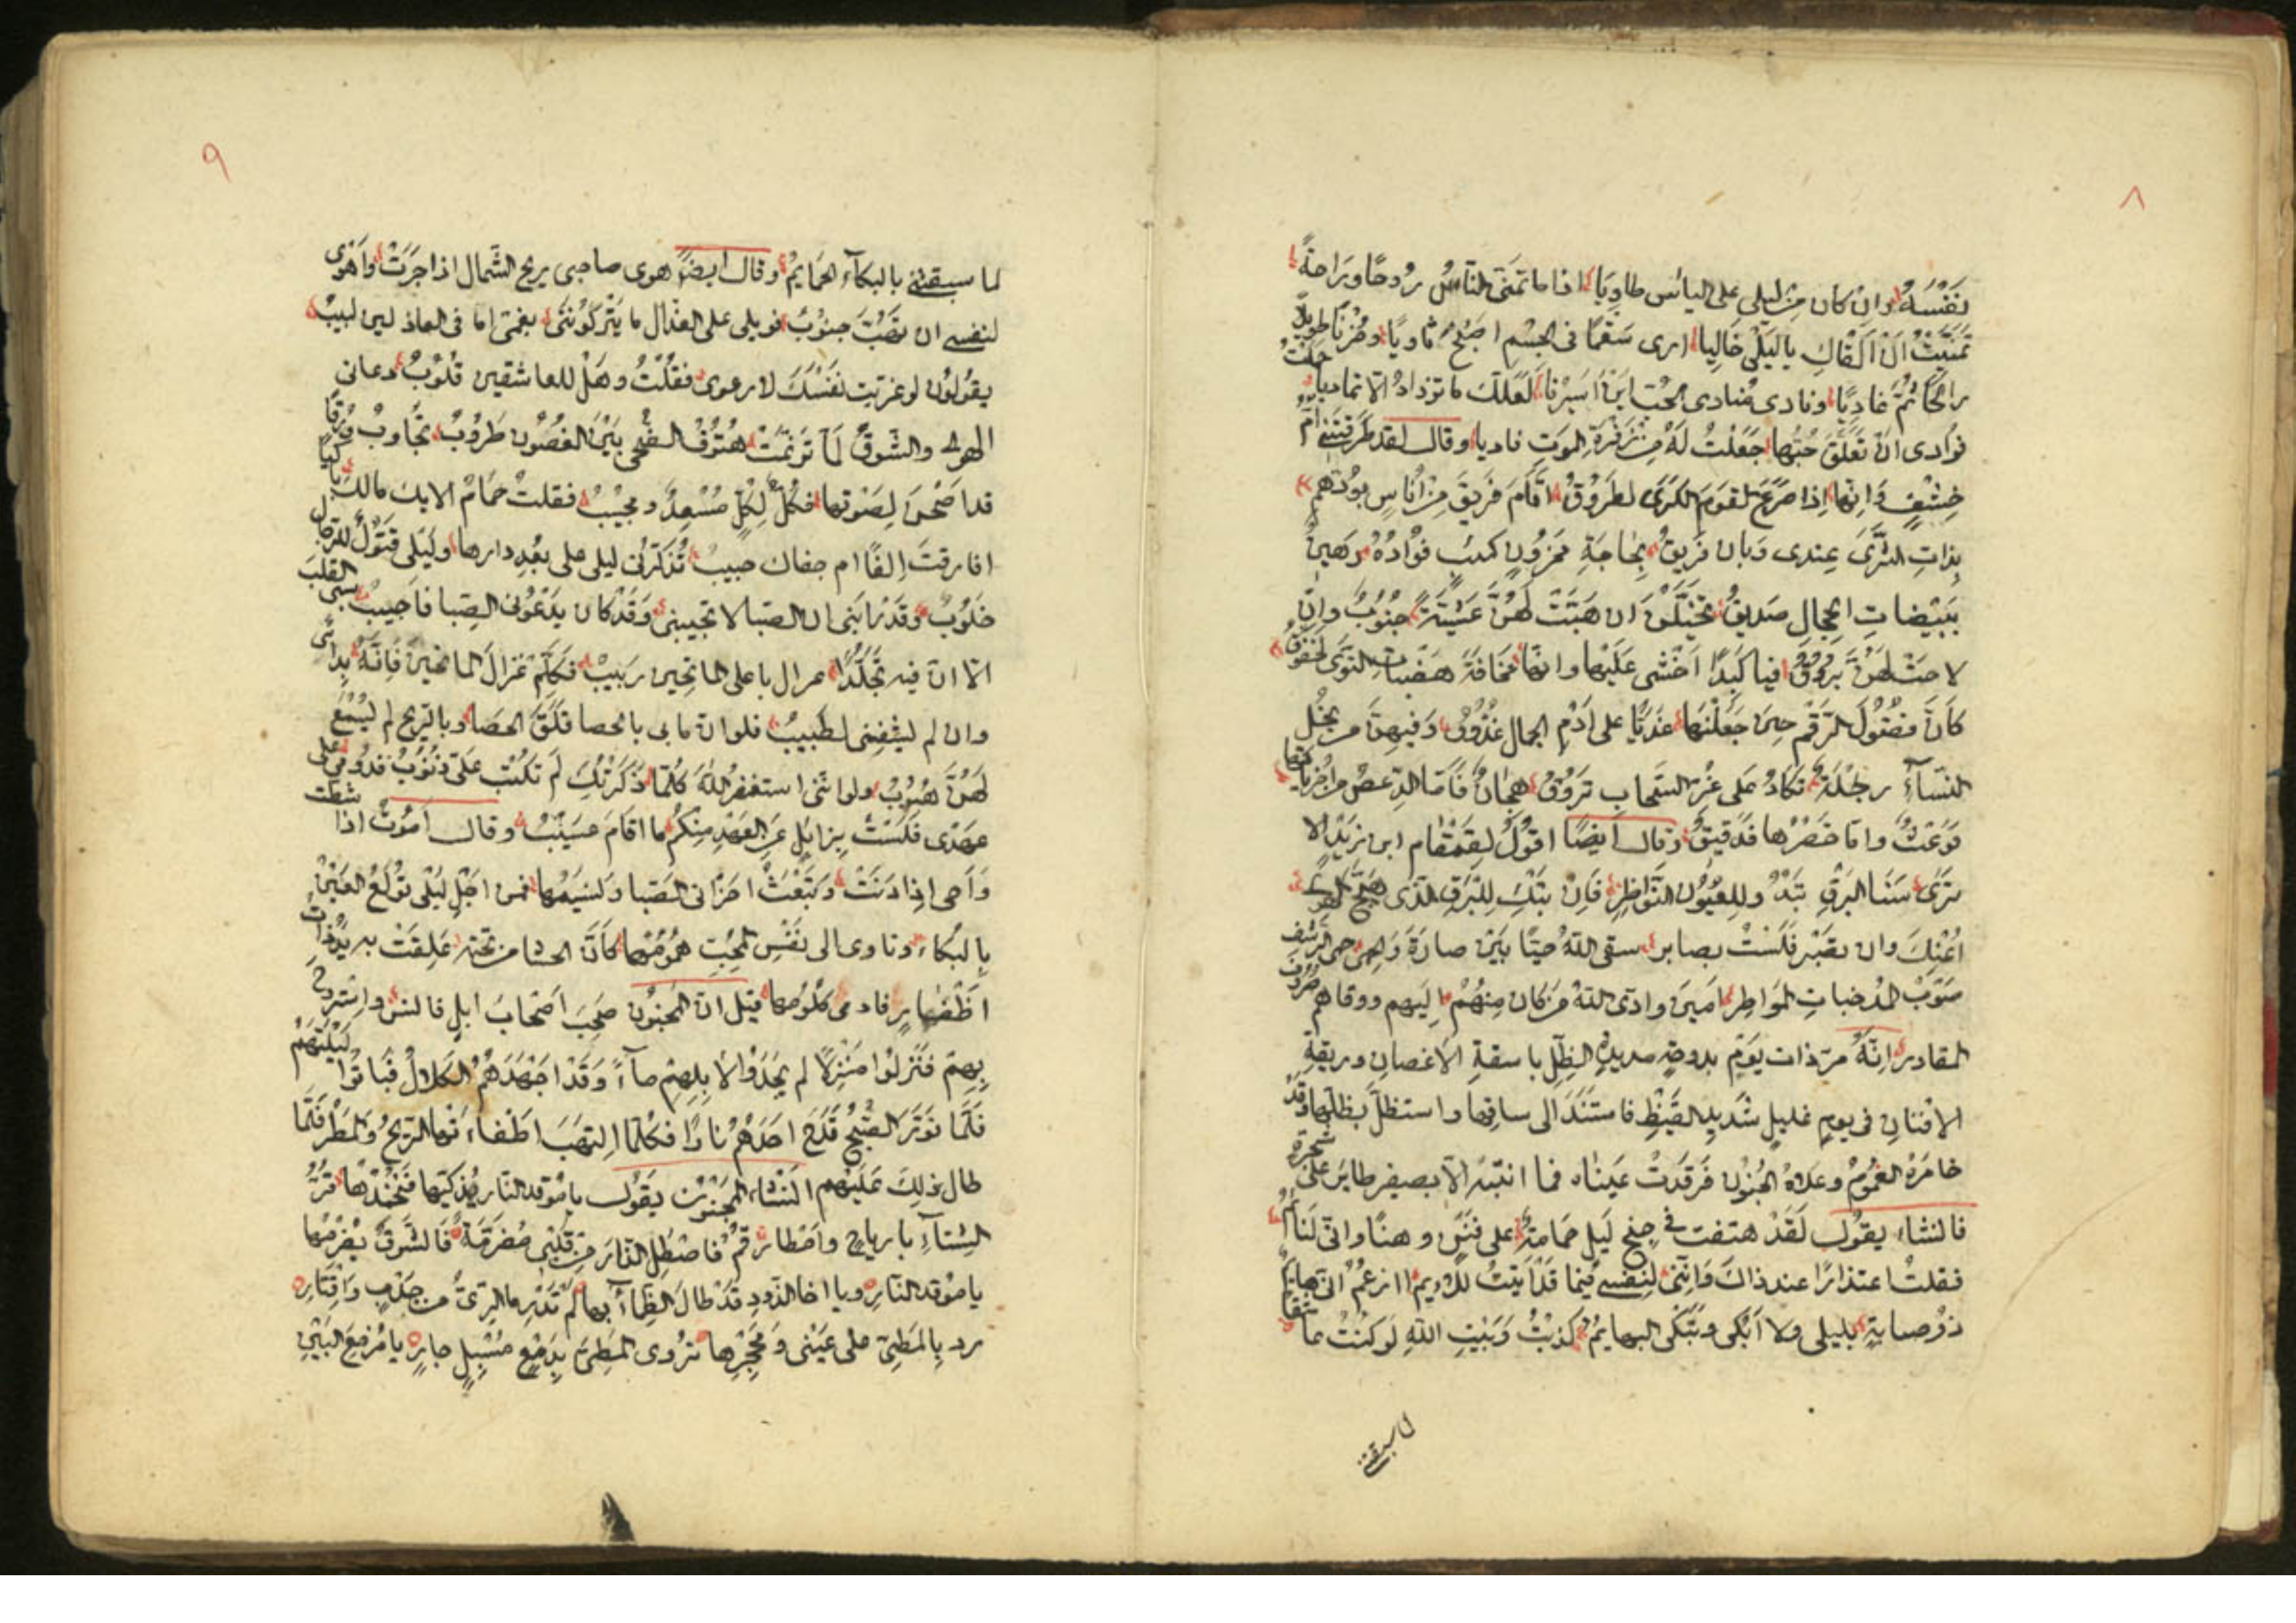 ٨
نَفْسَهُ وان كان من ليلى على اليأس طاويا اذا ما تمنى الناس روحًا وراحةً
تمنيت ان القاك يا ليلى خاليا ارى سقما فى الجسم اصبح ثاويًا وحزنا طويلا
رائحًا ثم غاديًا ونادى منادى الحب اين اسيرنا لعلك ما تزداد الا تماديا
فؤادى ان تعلق حبها جعلت له من زفرة الموت فاديا وقال لقد طرقتنى ام
خشف وانها اذا صرع القوم الكرى لطروق اقام فريق من اناس بودهم
بذات الثرى عندى وبان فريق بحاجة محزون كئيب فؤاده رهين
ببيضات الحجال صديق تحملن ان هبت لهن عشية جنوب وان
لاحت لهن بروق فيا كبدًا اخشى عليها وانها مخافة هضبات النوى لخفوق
كأن فضول الرقم حين جعلنها غديًا على ادم الجمال عذوق وفيهن من بخل
النساء رجلة تكاد على غر السحاب تروق هجان فاما الدعص من اخرياتها
فوعث واما خصرها فدقيق وقال ايضًا اقول لقمقام ابن زيد الا
ترى سنا البرق يبدو للعيون النواظر فان تبك للبرق الذى هيج الهوى
اعنك وان تصبر فلست بصابر سقى الله حيًا بين صارة والحمى حمى
صوب المدجنات المواطر امين وادى الله من كان منهم اليهم ووقاهم صروف
المقادر انه مر ذات يوم بدوحة مديدة الظل باسقة الاغصان وريقة
الافنان فى يوم غليل شديد القيظ فاستند الى ساقها واستظل بظلها وقد
خامره الغموم وعلاه الجنون فرقدت عيناه فما انتبه الا بصفير طاير على شجرة
فانشاء يقول لقد هتفت فى جنح ليل حمامة على فنن وهنا وانى لنائم
فقلت اعتذارًا عند ذاك واننى لنفسى فيما قد اتيت للايم اازعم انى هايم
ذو صبابة بليلى ولا ابكى وتبكى البهايم كذبت وبيت الله لو كنت عاشقا
لما سبقتنى
٩
لما سبقتنى بالبكآء الحمايم وقال ايضًا هوى صاحبى ريح الشمال اذا جرت واهوى
لنفسى ان تهب جنوب فويلى على العذال ما يتركوننى بغمى اما فى العاذلين لبيب
يقولون لو عزيت نفسك لارعوى فقلت وهل للعاشقين قلوب دعانى
الهوى والشوق لما ترنمت هتوف الضحى بين الغصون طروب تجاوب ورقا
قد اصخن لصوتها فكل لكل مسعد ومجيب فقلت حمام الايك مالك باكيا
افارقت الفًا ام جفاك حبيب تذكرنى ليلى على بعد دارها وليلى قتول للرجال
خلوب وقد رابنى ان الصبا لا تجيبنى وقد كان يدعونى الصبا فاجيب سبى القلب
الا ان فيه تجلدًا غزال باعلى الماتحين ربيب فكلم غزال الماتحين فانه بدائى
وان لم يشفنى لطبيب فلو ان ما بى بالحصا فلق الحصا وبالريح لم يسمع
لهن هبوب ولو اننى استغفر الله كلما ذكرتك لم تكتب على ذنوب فدومى على
عهدى فلست بزايل عن العهد منكم ما اقام عسيب وقال اموت اذا شطت
واحيى اذا دنت وتبعث احزانى الصبا ونسيمها فمن اجل ليلى تولع العين
بالبكاء وتاوى الى نفس المحب همومها كأن الحشا من تحته علقت به يد ذات
اظفار فادمى كلومها قيل ان المجنون صحب اصحاب ابل فانس واستروح
بهم فنزلوا منزلا لم يجدوا لابلهم مآء وقد اجهدهم الكلال فباتوا ليلتهم
فلما نور الصبح قدح احدهم نارًا فكلما التهب اطفاءتها الريح والمطر فلما
طال ذلك عليهم انشاء المجنون يقول يا موقد النار يذكيها فتخمدها قر
الشتاء بارياح وامطار قم فاصطل النار من قلبى مضرمة فالشوق يضرمها
يا موقد النار ويا اخا الذود قد طال الظمأ بها لم تدر ما الرى من جدب واقتار
رد بالمطى على عينى ومحجرها تروى المطى بدمع مسبل جار يا مزمع البين